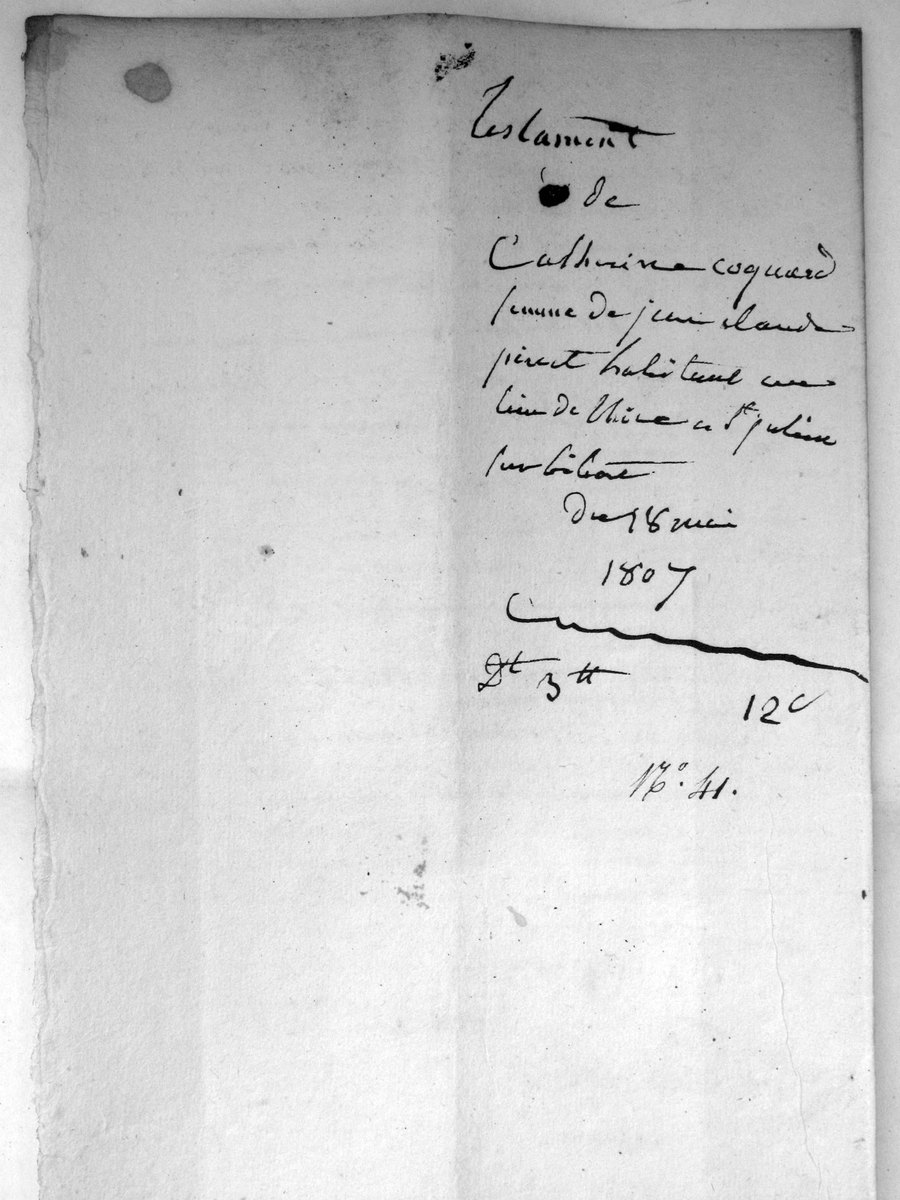 Testament
de
Catherine coquard
femme de jean claude
peret habitant au
lieu de a St julien
sur bibost
Du 18 mai
1807
Dt 3tt
12c
N°. 41.